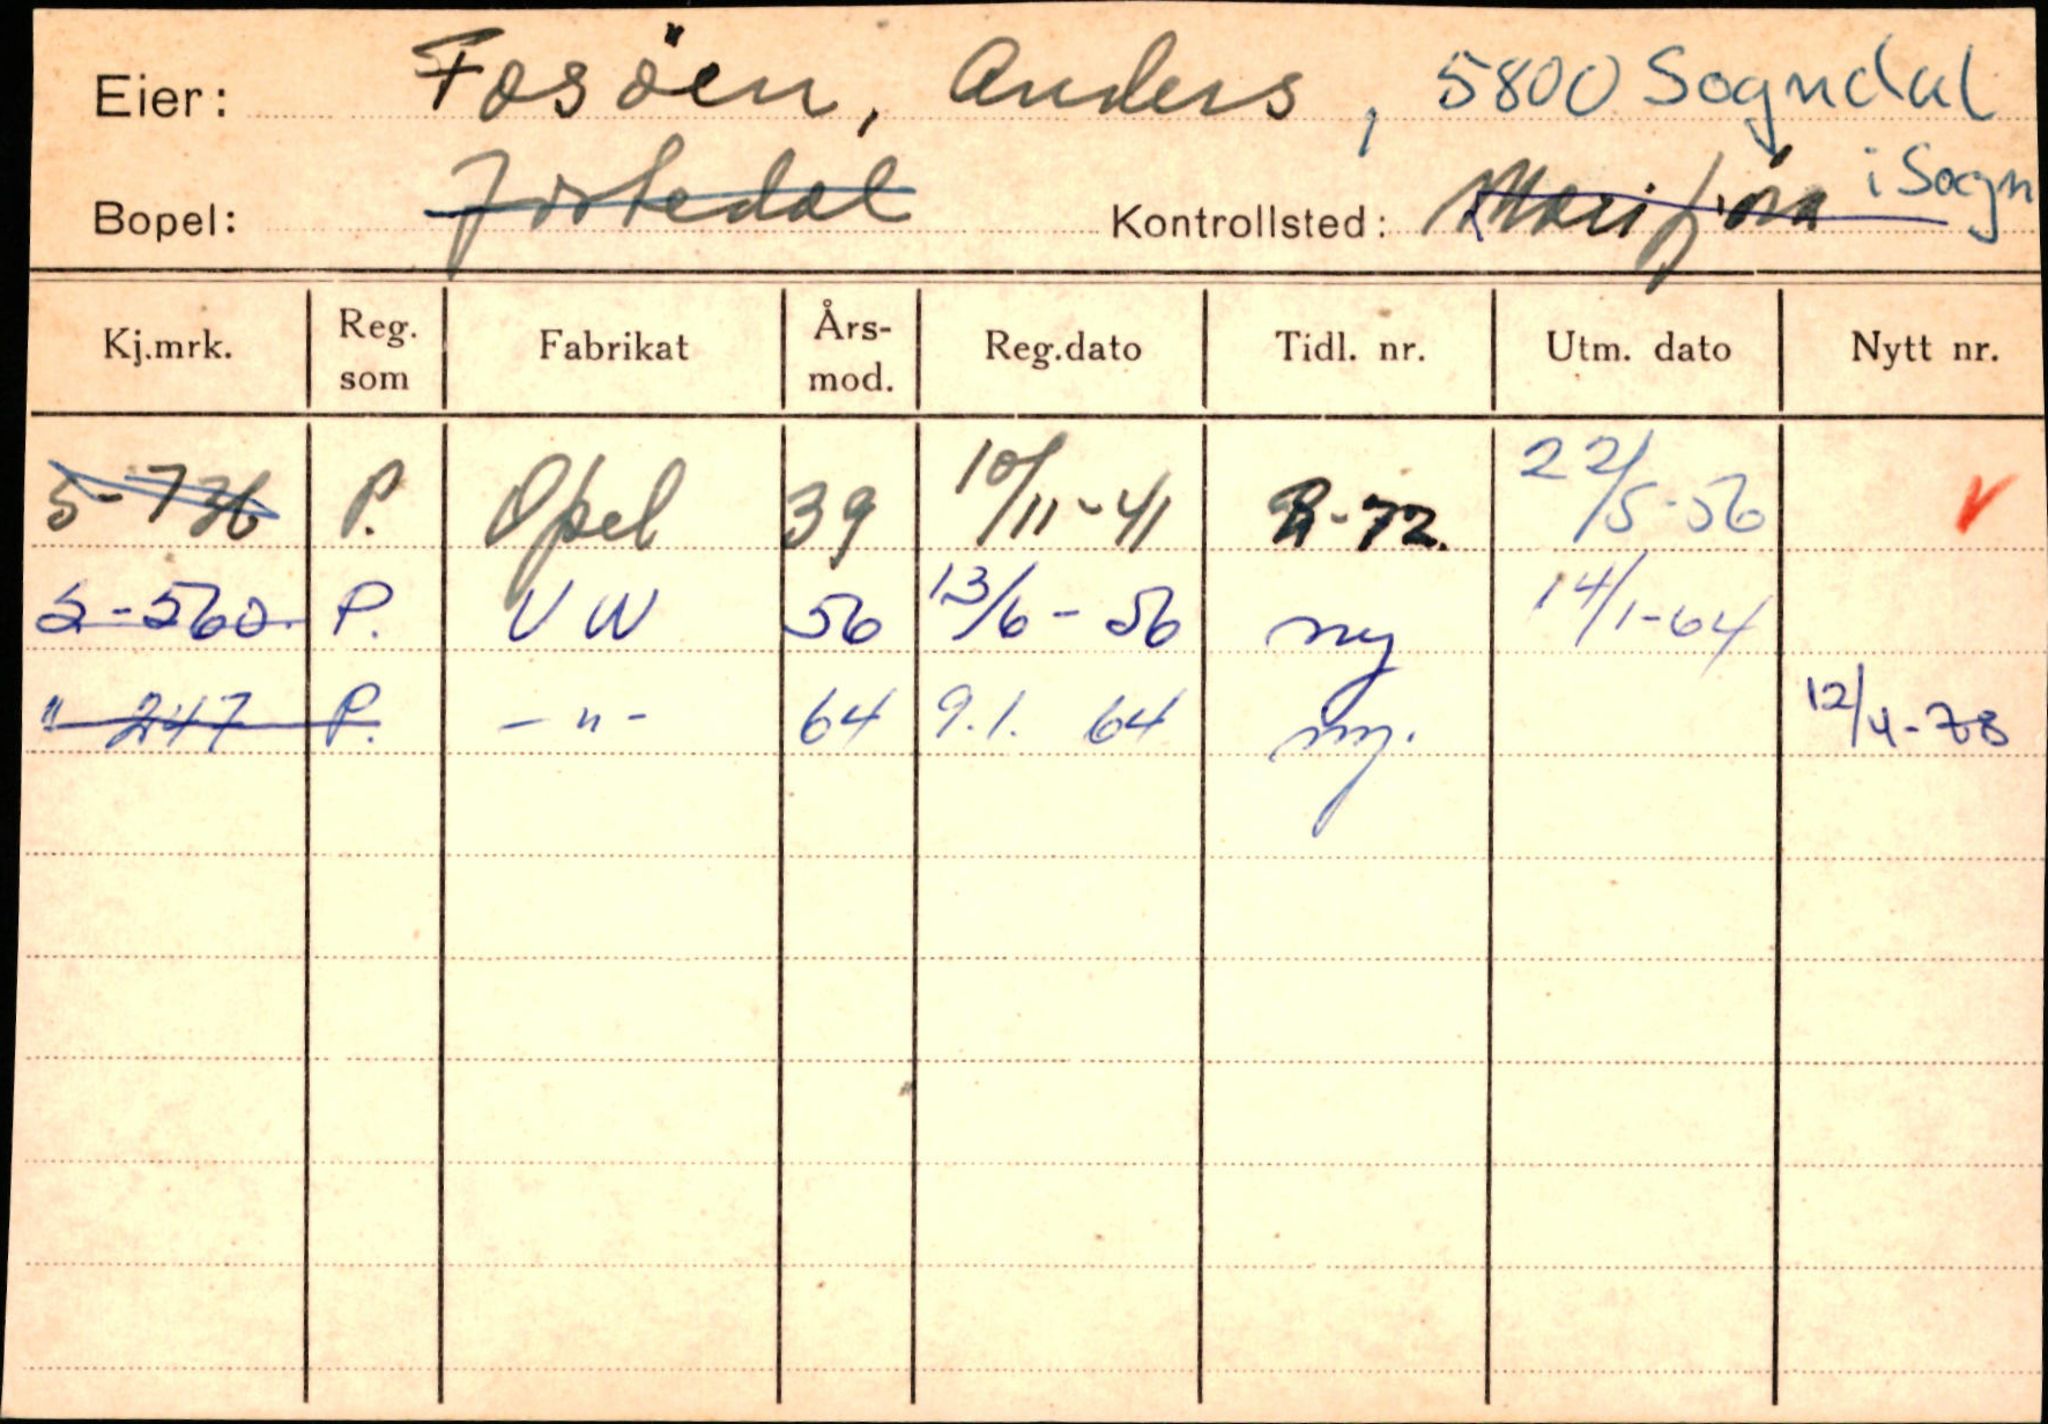 Eier: Fosöen, Anders, 5800 Sogndal
i Sogn
Bopel: Jostedal Kontrollsted: Marifjöra
Kj.mrk. Reg. som Fabrikat Års-mod. Reg.dato Tidl. nr. Utm. dato Nytt nr.
S-736 P. Opel 39 10/11-41 R-72. 22/5-56 V
S-560 P. VW 56 13/6-56 ny 14/1-64
" 247 P. -"- 64 9.1. 64 ny. 12/4-78